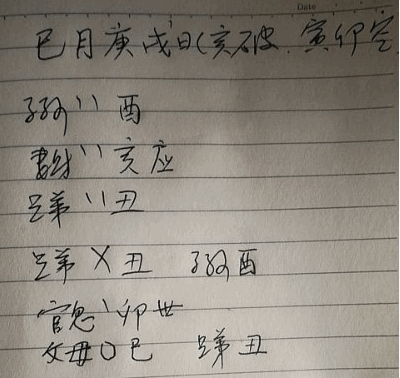 Date
巳月庚戌日(亥破. 寅卯空
子孙 〃 酉
妻财 〃 亥应
兄弟 〃 丑
兄弟 X 丑 子孙酉
官鬼 丶 卯世
父母 O 巳 兄弟丑